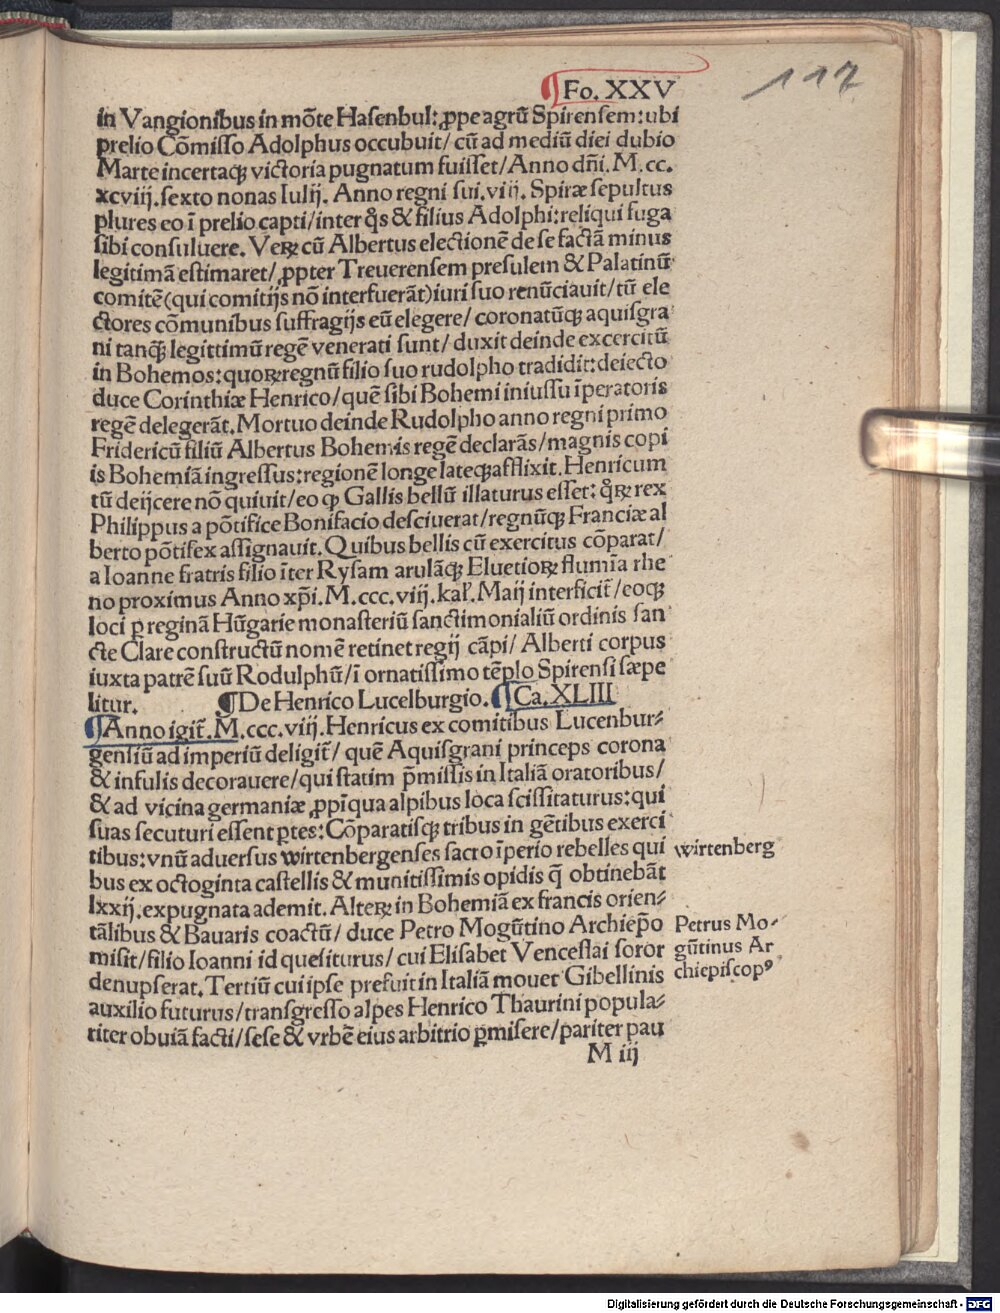 ¶Fo. XXV
117
in Vangionibus in mõte Hasenbul: ꝓpe agrũ Spirensem: ubi
prelio Cõmisso Adolphus occubuit/ cũ ad mediũ diei dubio
Marte incertaqꝫ victoria pugnatum fuisset/ Anno dñi. M. cc.
xcviij. sexto nonas Iulij. Anno regni sui. viij. Spiræ sepultus
plures eo ĩ prelio capti/ inter q̃s & filius Adolphi: reliqui fuga
sibi consuluere. Veꝝ cũ Albertus electionẽ de se factã minus
legitimã estimaret/ ꝓpter Treuerensem presulem & Palatinũ
comitẽ (qui comitijs nõ interfuerãt) iuri suo renũciauit/ tũ ele
ctores cõmunibus suffragijs eũ elegere/ coronatũqꝫ aquisgra
ni tanqꝫ̃ legittimũ regẽ venerati sunt/ duxit deinde excercitũ
in Bohemos: quoꝝ regnũ filio suo rudolpho tradidit: deiecto
duce Corinthiæ Henrico/ quẽ sibi Bohemi iniussu ĩperatoris
regẽ delegerãt. Mortuo deinde Rudolpho anno regni primo
Fridericũ filiũ Albertus Bohemis regẽ declarãs/ magnis copi
is Bohemiã ingressus: regionẽ longe lateqꝫ afflixit. Henricum
tũ deijcere nõ quiuit/ eo ꝙ Gallis bellũ illaturus esset: q̃ꝝ rex
Philippus a põtifice Bonifacio desciuerat/ regnũqꝫ Franciæ al
berto põtifex assignauit. Quibus bellis cũ exercitus cõparat/
a Ioanne fratris filio ĩter Rysam arulãqꝫ Eluetioꝝ flumĩa rhe
no proximus Anno xp̃i. M. ccc. viij. kal'. Maij interficit̃/ eoqꝫ
loci ꝑ reginã Hũgarie monasteriũ sanctimonialiũ ordinis san
cte Clare constructũ nomẽ retinet regij cãpi/ Alberti corpus
iuxta patrẽ suũ Rodulphũ/ ĩ ornatissimo tẽplo Spirensi sæpe
litur. ¶De Henrico Lucelburgio. ¶Ca. XLIII
¶Anno igit̃. M. ccc. viij. Henricus ex comitibus Lucenbur⸗
gensiũ ad imperiũ deligit̃/ quẽ Aquisgrani princeps corona
& infulis decorauere/ qui statim p̃missis in Italiã oratoribus/
& ad vicina germaniæ ꝓpĩqua alpibus loca scissitaturus: qui
suas secuturi essent ꝑtes: Cõparatisqꝫ tribus in gẽtibus exerci
tibus: vnũ aduersus wirtenbergenses sacro ĩperio rebelles qui
bus ex octoginta castellis & munitissimis opidis q̃ obtinebãt
lxxij. expugnata ademit. Alteꝝ in Bohemiã ex francis orien⸗
tãlibus & Bauaris coactũ/ duce Petro Mogũtino Archiep̃o
misit/ filio Ioanni id quesiturus/ cui Elisabet Venceslai soror
denupserat. Tertiũ cui ipse prefuit in Italiã mouet Gibellinis
auxilio futurus/ transgresso alpes Henrico Thaurini popula⸗
riter obuiã facti/ sese & vrbẽ eius arbitrio ꝑmisere/ pariter pau
M iij
wirtenberg
Petrus Mo⸗
gũtinus Ar
chiepiscopꝰ
Digitalisierung gefördert durch die Deutsche Forschungsgemeinschaft - DFG